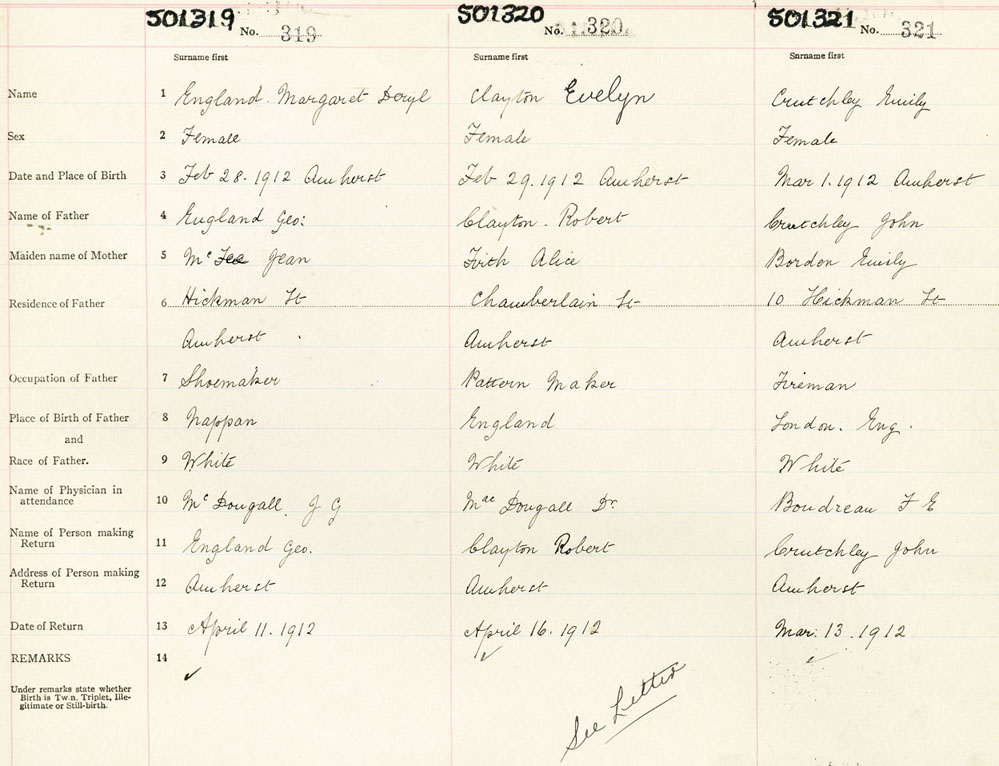 501319 No. 319 501320 No. 320 501321 No. 321
Surname first Surname first Surname first
Name 1 England. Margaret Deryl Clayton Evelyn Crutchley Emily
Sex 2 Female Female Female
Date and Place of Birth 3 Feb 28. 1912 Amherst Feb 29. 1912 Amherst Mar 1. 1912 Amherst
Name of Father 4 England Geo: Clayton. Robert Crutchley John
Maiden name of Mother 5 Mc Jean Firth Alice Borden Emily
Residence of Father 6 Hickman St Chamberlain St 10 Hickman St
Amherst Amherst Amherst
Occupation of Father 7 Shoemaker Pattern Maker Fireman
Place of Birth of Father 8 Nappan England London. Eng.
and
Race of Father. 9 White White White
Name of Physician in
attendance 10 Mc Dougall, J G Mac Dougall Dr. Boudreau F E
Name of Person making
Return 11 England Geo. Clayton Robert Crutchley John
Address of Person making
Return 12 Amherst Amherst Amherst
Date of Return 13 April 11. 1912 April 16. 1912 Mar. 13. 1912
REMARKS 14
Under remarks state whether
Birth is Twin, Triplet, Ille-
gitimate or Still-birth.
See Letter